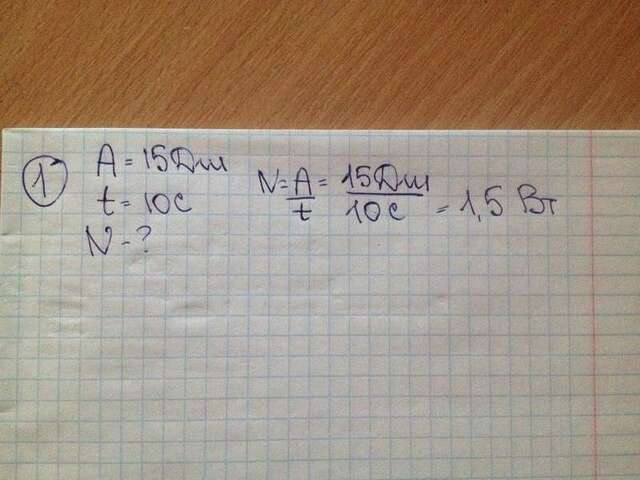 1
A = 15Дж
t = 10с
N - ?
N = A/t = 15Дж/10с = 1,5 Вт